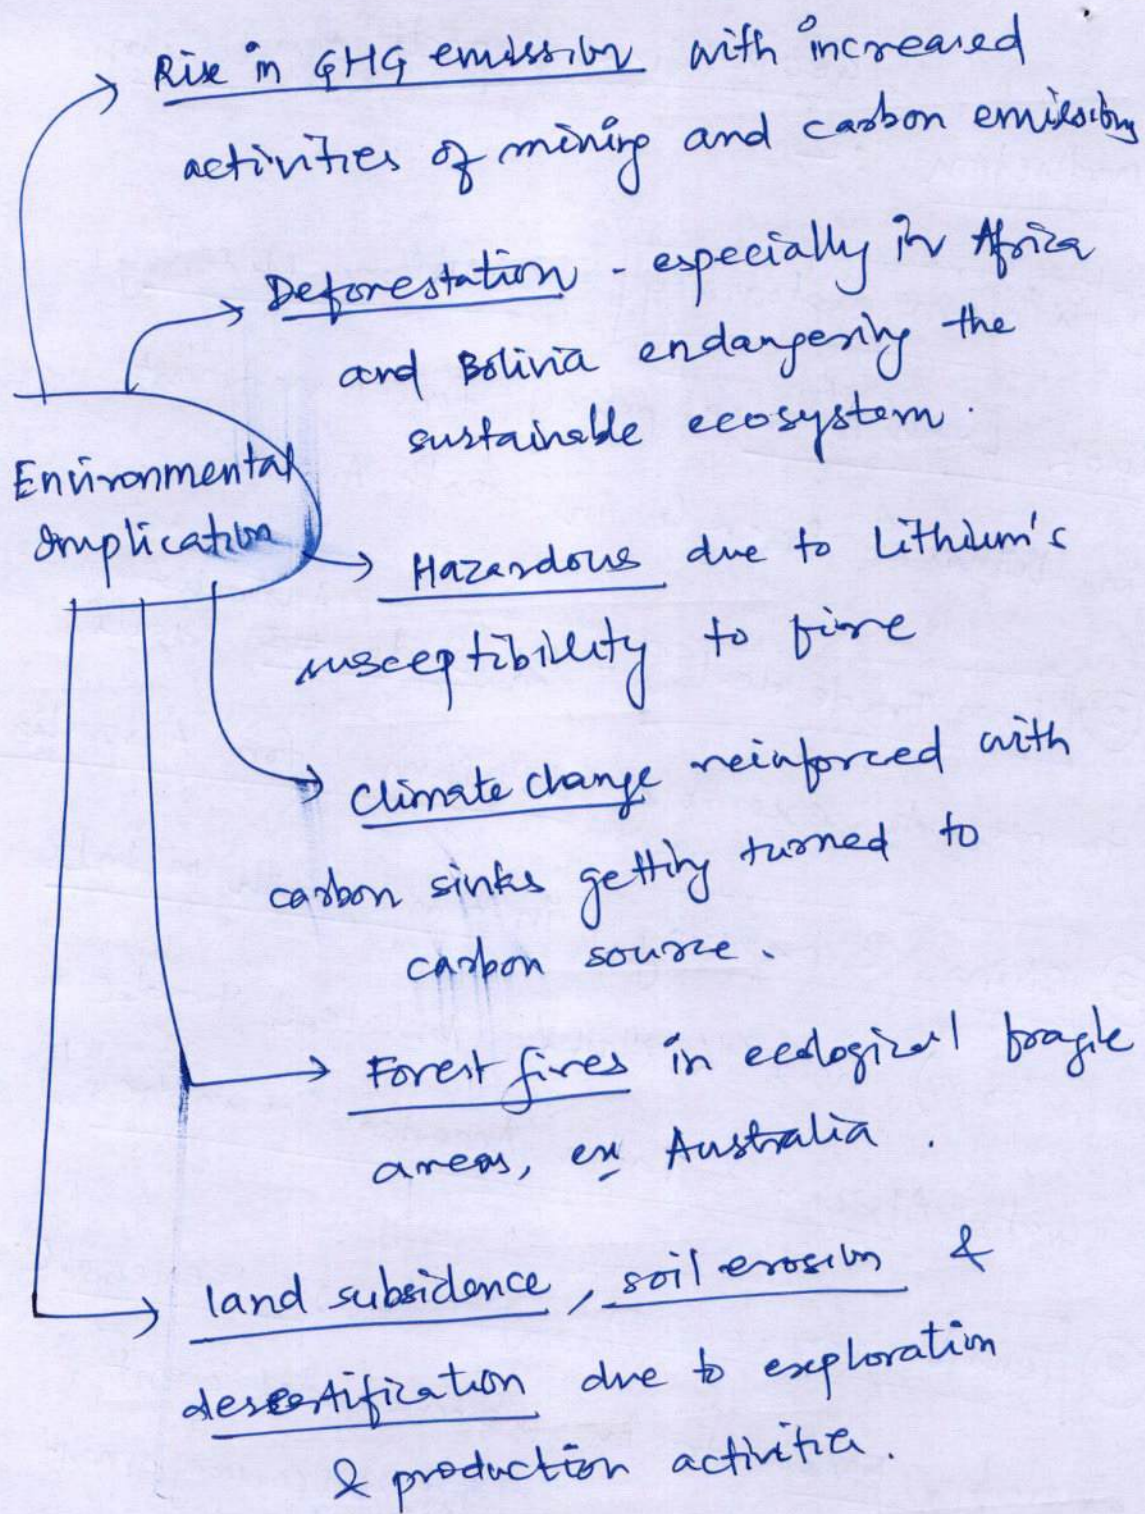 Rise in GHG emission with increased
activities of mining and carbon emissions
Deforestation - especially in Africa
and Bolivia endangering the
sustainable ecosystem.
Environmental
Implication
Hazardous due to Lithium's
susceptibility to fire
Climate change reinforced with
carbon sinks getting turned to
carbon source.
Forest fires in ecological fragile
areas, ex Australia.
land subsidence, soil erosion &
desertification due to exploration
& production activities.